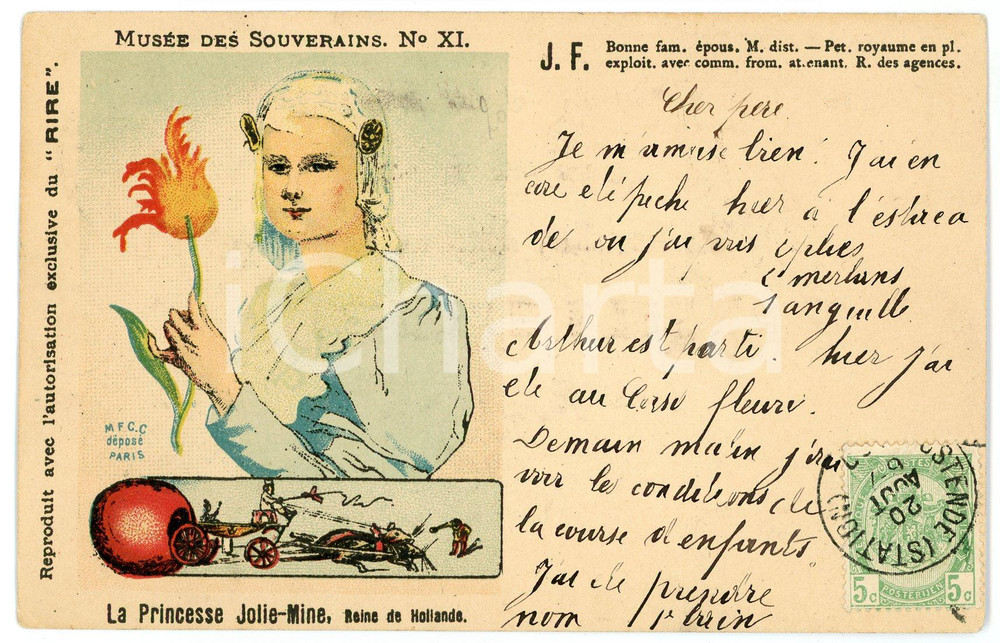 MUSÉE DES SOUVERAINS. No XI.
Reproduit avec l'autorisation exclusive du "RIRE".
M F C.C
déposé
PARIS
La Princesse Jolie-Mine, Reine de Hollande.
J. F. Bonne fam. épous. M. dist. — Pet. royaume en pl.
exploit. avec comm. from. attenant. R. des agences.
Cher père
Je m'amuse bien. J'ai en
core été pêche hier à l'estaca
de ou j'ai pris plies
merlans
1 anguille
Arthur est parti. hier j'ai
été au Corso fleuri.
Demain matin j'irai
voir les conditions de
la course d'enfants
J'ai de prendre
nom
OSTENDE (STATION)
20
AOUT
5c POSTERIJEN 5c
iCharta